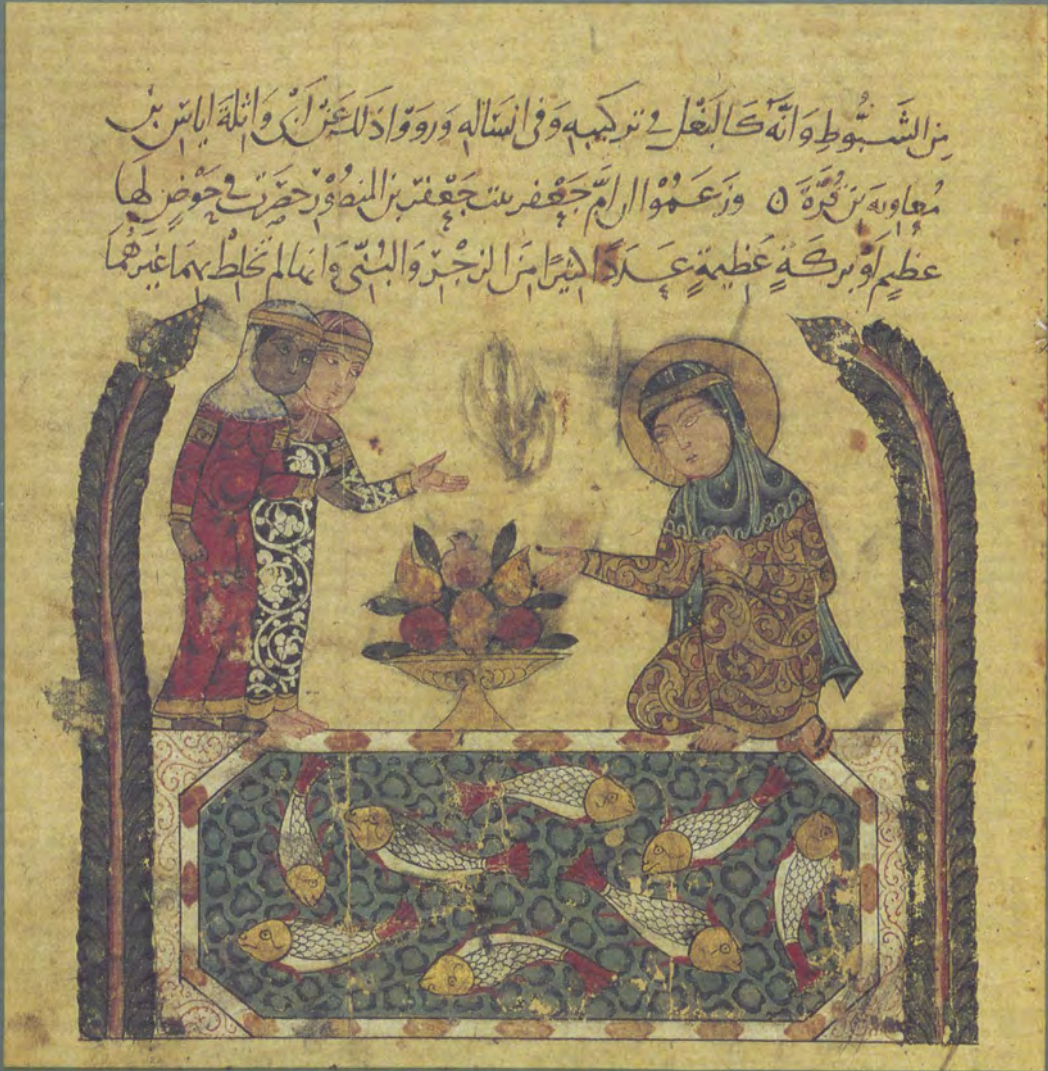 مِنَ الشَّبُّوطِ وَانَّهُ كَالبَغْلِ في تركيبِهِ وَفي انسَالِهِ وَرَوَوْا ذلك عَنْ أبي وَاثِلَةَ اياسِ بنِ
مُعاوِيَةَ بن قُرَّةَ ن وَزَعَمُوْا ان امَّ جَعْفر بنت جَعْفَر بن المنصُوْر حصَرت في حَوْضٍ لها
عظيمٍ اَوْ بركَةٍ عَظِيمَةٍ عَدَدًا كثيرًا مِنَ الزجْر وَالبُنّي وَانها لم تخلِطْ بهمَا غيرَهُما